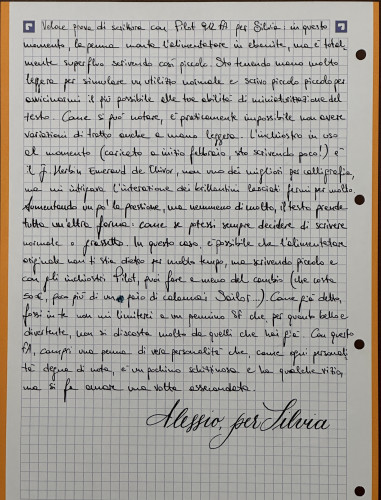 Veloce prova di scrittura con Pilot 912 FA per Silvia: in questo
momento, la penna monta l'alimentatore in ebanite, ma è total
mente superfluo scrivendo così piccolo. Sto tenendo mano molto
leggera per simulare un utilizzo normale e scrivo piccolo piccolo per
avvicinarmi il più possibile alle tue abilità di miniaturizzazione del
testo. Come si può notare, è praticamente impossibile non avere
variazioni di tratto anche a mano leggera. L'inchiostro in uso
al momento (caricato a inizio febbraio, sto scrivendo poco!) è
il J. Herbin Emeraud de Chivor, non uno dei migliori per calligrafia,
ma mi intrigava l'interazione dei brillantini lasciati fermi per molto.
Aumentando un po' la pressione, ma nemmeno di molto, il testo prende
tutta un'altra forma: come se potessi sempre decidere di scrivere
normale o grassetto. In questo caso, è possibile che l'alimentatore
originale non ti stia dietro per molto tempo, ma scrivendo piccolo e
con gli inchiostri Pilot, puoi fare a meno del cambio (che costa
50€, poco più di un paio di calamai Sailor..). Come già detto,
fossi in te non mi limiterei a un pennino SF che per quanto bello e
divertente, non si discosta molto da quelli che hai già. Con questo
FA, compri una penna di vera personalità che, come ogni personali
tà degna di nota, è un pochino schizzinosa e ha qualche vizio,
ma si fa amare una volta assecondata.
Alessio, per Silvia